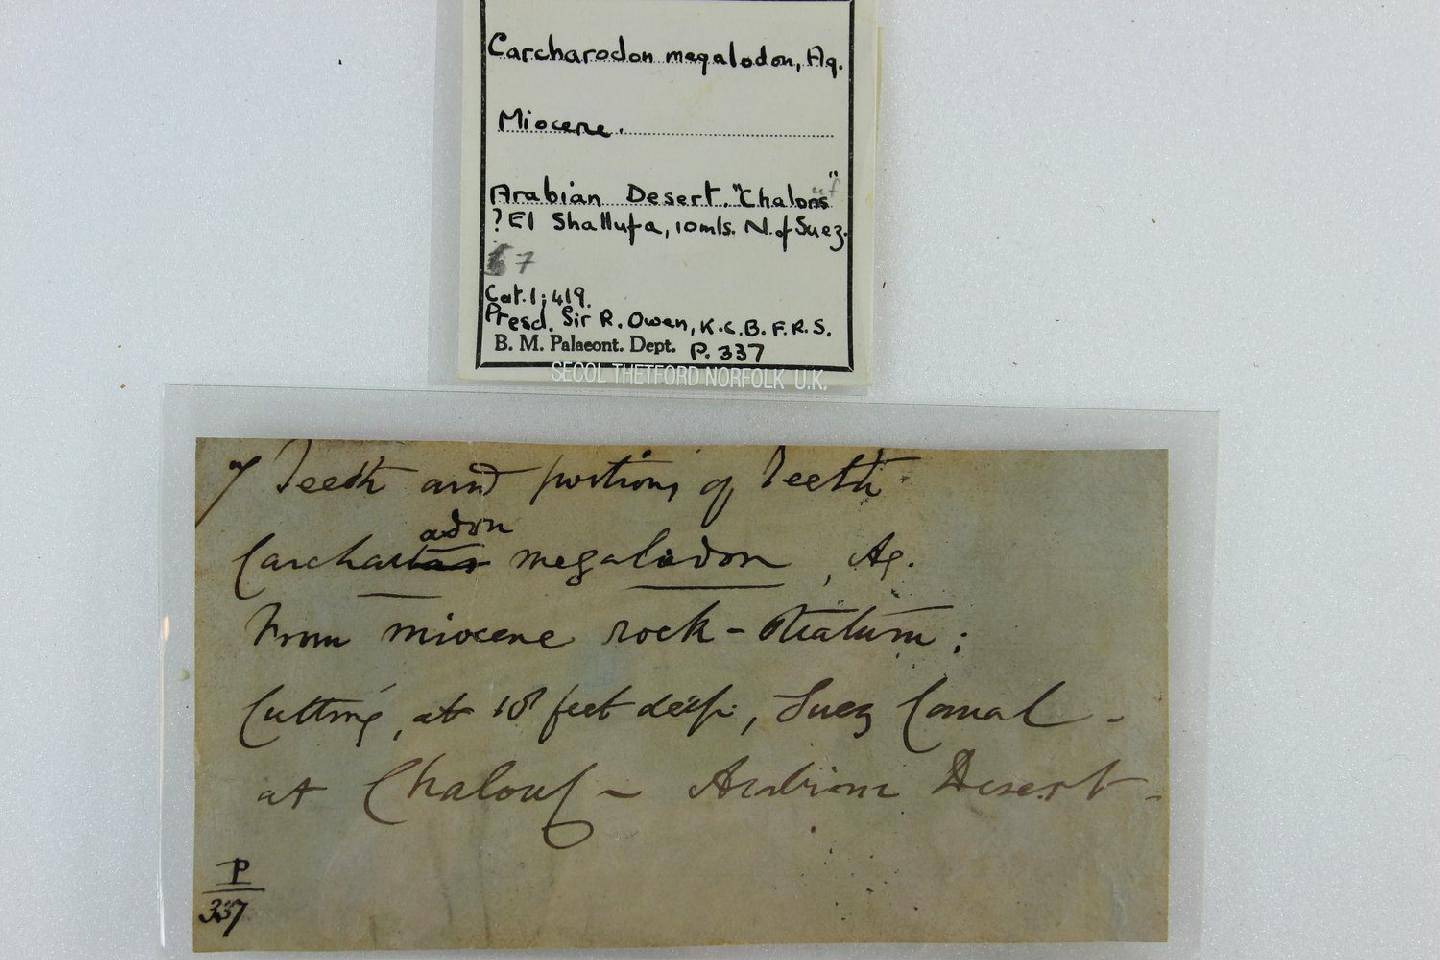 Carcharodon megalodon, Ag.
Miocene.
Arabian Desert. "Chalons"
? El Shallufa, 10mls. N. of Suez.
7
Cat. 1; 419.
Presd. Sir R. Owen, K.C.B. F.R.S.
B. M. Palaeont. Dept. P. 337
SECOL THETFORD NORFOLK U.K.
7 Teeth and portions of Teeth
adon
Carcharias megalodon, Ag.
From miocene rock-stratum;
Cutting, at 18 feet deep, Suez Canal -
at Chalouf - Arabian Desert -
P
337